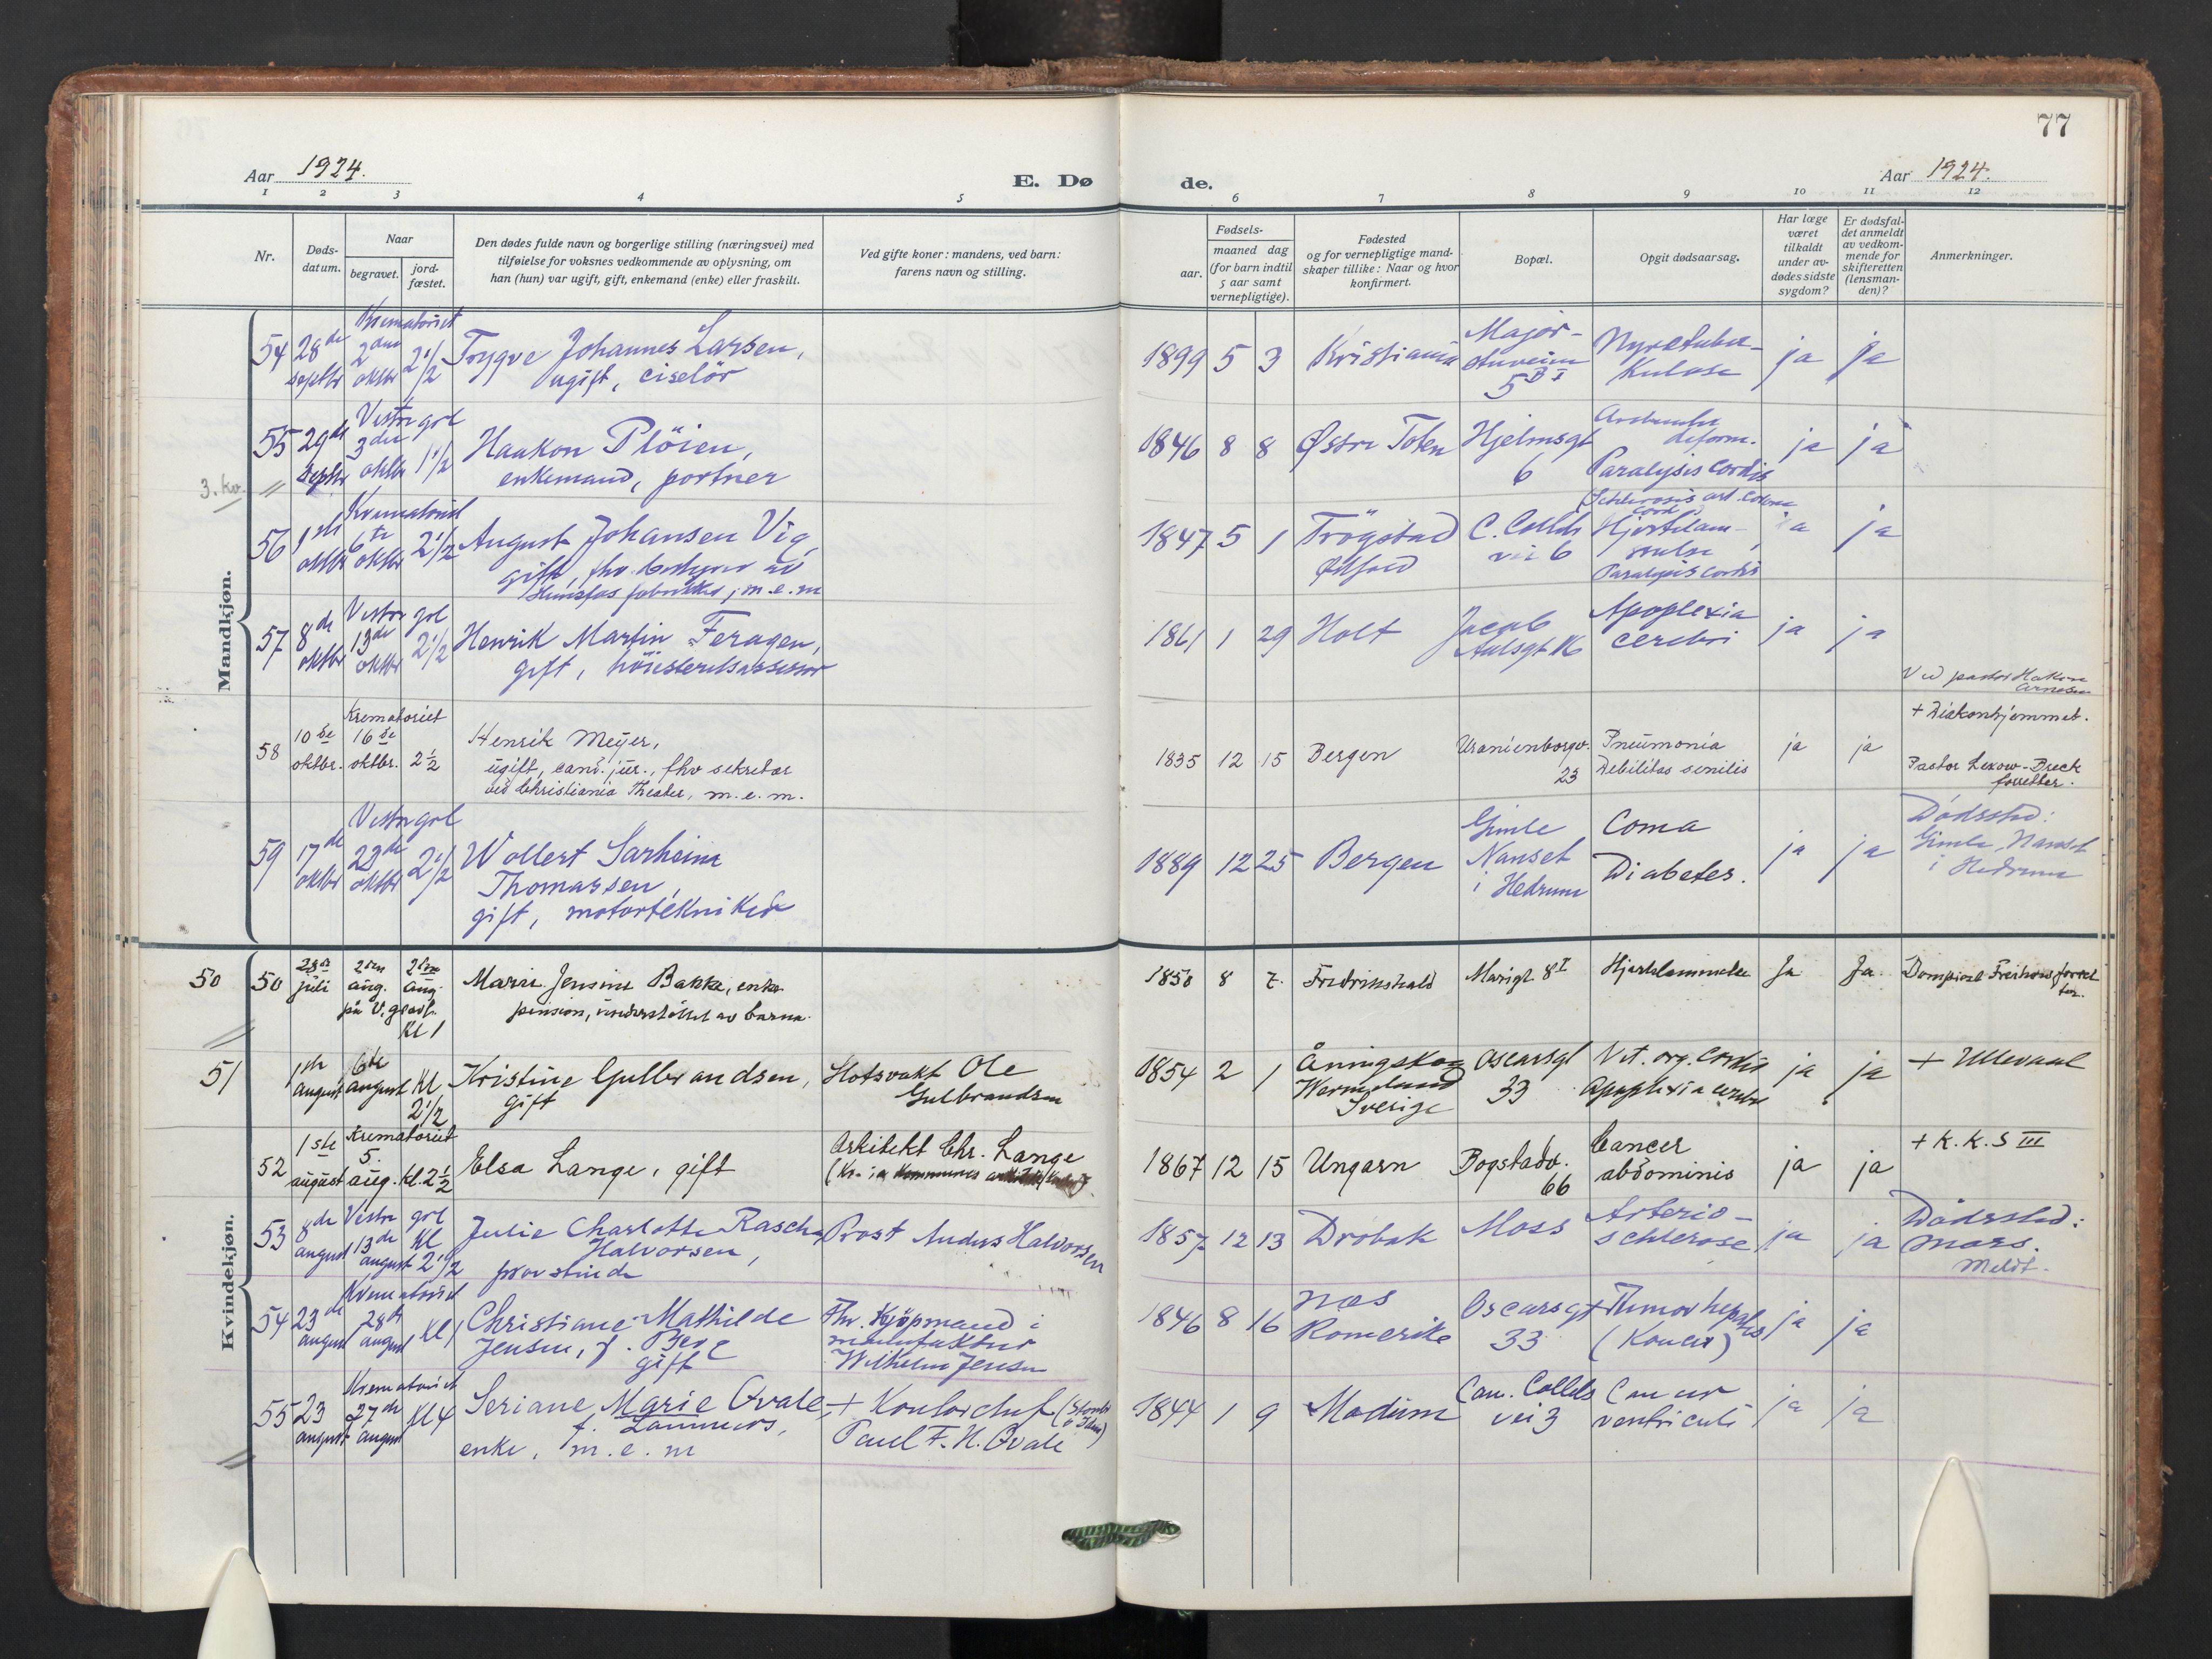 77
Aar 1924.
E. Dø de.
Aar 1924.
1 2 3 4 5 6 7 8 9 10 11 12
Nr.
Døds-
datum.
Naar
begravet.
jord-
fæstet.
Den dødes fulde navn og borgerlige stilling (næringsvei) med
tilføielse for voksnes vedkommende av oplysning, om
han (hun) var ugift, gift, enkemand (enke) eller fraskilt.
Ved gifte koner: mandens, ved barn:
farens navn og stilling.
Fødsels-
aar.
maaned dag
(for barn indtil
5 aar samt
vernepligtige).
Fødested
og for vernepligtige mand-
skaper tillike: Naar og hvor
konfirmert.
Bopæl.
Opgit dødsaarsag.
Har læge
været
tilkaldt
under av-
dødes sidste
sygdom?
Er dødsfal-
det anmeldt
av vedkom-
mende for
skifteretten
(lensman-
den)?
Anmerkninger.
Mandkjøn.
54
28de
septbr
Krematoriet
2den
oktbr
2 1/2
Trygve Johannes Larsen,
ugift, ciselör
1899 5 3
Kristiania
Major-
stuveien
5 B I
Nyretuber-
kulose
ja ja
3. kv.
55
29de
septbr
Vestre grl
3die
oktbr
1 1/2
Haakon Plöien,
enkemand, portner
1846 8 8
Østre Toten
Hjelmsgt
6
deform.
Paralysis cordis
ja ja
56
1ste
oktbr
Krematoriet
6te
oktbr
2 1/2
August Johansen Vig,
gift, fhv. bestyrer av
Hunsfos fabrikker, m.e.m
1847 5 1
Trögstad
Østfold
C. Colletts
vei 6
Hjertelam-
melse
Paralysis cordis
ja ja
57
8de
oktbr
Vestre grl
13de
oktbr
2 1/2
Henrik Martin Feragen,
gift, höiesteretsassessor
1861 1 29
Holt
Jacob
Aalsgt 16
Apoplexia
cerebri
ja ja
Ved pastor Hakon
Arnesen
58
10de
oktbr.
Krematoriet
16de
oktbr.
2 1/2
Henrik Meyer,
ugift, cand. jur., fhv sekretær
ved Christiania Theater, m.e.m.
1835 12 15
Bergen
Uranienborgv.
23
Pneumonia
Debilitas senilis
ja ja
+ Diakonhjemmet.
Pastor Lexow-Breck
forretter.
59
17de
oktbr
Vestre grl
22de
oktbr
2 1/2
Wollert Sarheim
Thomassen,
gift, motortekniker
1889 12 25
Bergen
Gimle
Nanset
i Hedrum
Coma
Diabetes.
ja ja
Dödssted:
Gimle, Nanset
i Hedrum
Kvindekjøn.
50 50
28de
juli
2den
aug.
2den
aug.
på V. gravl.
Kl 1
Marie Jensine Bakke, enke
pension, understöttet av barna.
1850 8 7.
Fredrikshald
Marigt 8 I
Hjertelammelse
Ja Ja.
51
1ste
august
6te
august
Kl
2 1/2
Kristine Gulbrandsen,
gift
Slotsvakt Ole
Gulbrandsen
1854 2 1
Wermeland
Sverige
Oscarsgt
33
Vit. org. cordis
Apoplexia cerebri
ja ja
+ Ullevaal
52
1ste
august
Krematoriet
5.
aug.
kl. 2 1/2
Elsa Lange, gift
Arkitekt Chr. Lange
1867 12 15
Ungarn
Bogstadv.
66
Cancer
abdominis
ja ja
+ K. K. S III
53
8de
august
Vestre grl
13de
august
Kl
2 1/2
Julie Charlotte Rasch
Halvorsen,
provstinde
Prost Anders Halvorsen
1857 12 13
Dröbak
Moss
Arterio-
schlerose
ja ja
Dödssted:
Moss.
Meldt.
54
23de
august
Krematoriet
28de
august
Kl 1
Christiane Mathilde
Jensen, f. Berg
gift
Fhv. Kjöpmand i
manufaktur
Wilhelm Jensen
1846 8 16
Næs
Romerike
Oscarsgt
33
Tumor hepatis
(Kancer)
ja ja
55
23
august
Krematoriet
27de
august
Kl 4
Seriane Marie Qvale,
f. Lammers,
enke, m.e.m
+ Kontorchef
Paul F. N. Qvale
1844 1 9
Modum
Cam. Colletts
vei 3
Cancer
ventriculi
ja ja